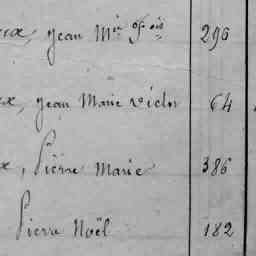 Jean Mie fois 296
Jean Marie Victor 64
Pierre Marie 386
Pierre Noël 182